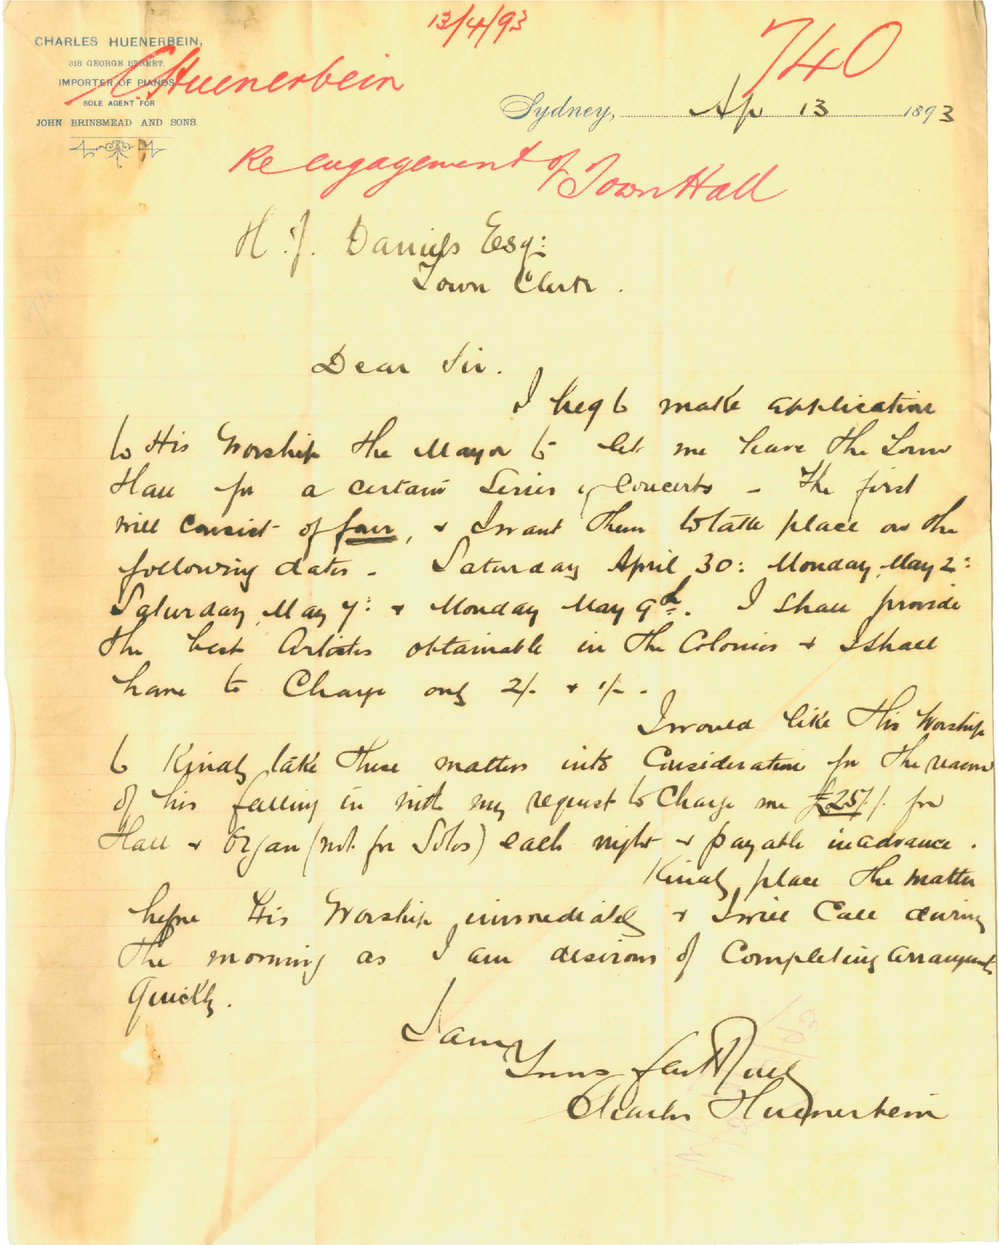 13/4/93
740
CHARLES HUENERBEIN,
318 GEORGE STREET.
IMPORTER OF PIANOS
SOLE AGENT FOR
JOHN BRINSMEAD AND SONS.
C Huenerbein
Sydney, Ap 13 1893
Re engagement of Town Hall
H. J. Daniels Esq:
Town Clerk.
Dear Sir.
I beg to make application
to His Worship the Mayor to let me have the Town
Hall for a certain Series of Concerts - The first
will consist of four, & I want them to take place on the
following dates - Saturday April 30: Monday, May 2:
Saturday, May 7: & Monday May 9th. I shall provide
the best Artistes obtainable in the Colonies & I shall
have to Charge only 2/- & 1/-.
I would like His Worship
to Kindly take these matters into Consideration for the reason
of his falling in with my request to Charge me £25/-/- for
Hall & Organ (not for Solos) each night & payable in advance.
Kindly place the matter
before His Worship immediately & I will Call during
the morning as I am desirous of Completing arrangements
Quickly.
I am
Yours faithfully
Charles Huenerbein